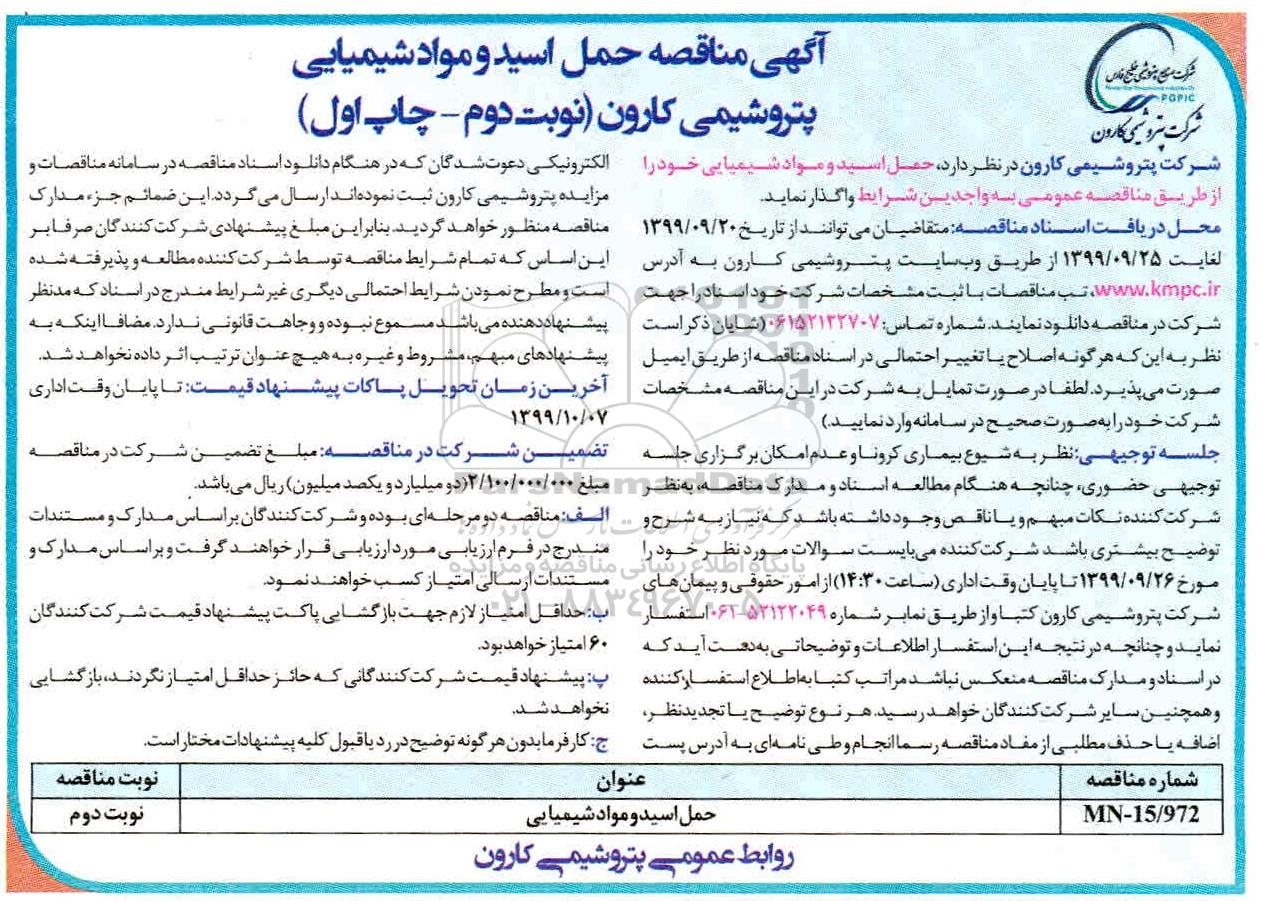 آگهی مناقصه حمل اسید و مواد شیمیایی
پتروشیمی کارون (نوبت دوم - چاپ اول)
شرکت صنایع پتروشیمی خلیج فارس
PGPIC
شرکت پتروشیمی کارون
شرکت پتروشیمی کارون در نظر دارد، حمل اسید و مواد شیمیایی خود را
از طریق مناقصه عمومی به واجدین شرایط واگذار نماید.
محل دریافت اسناد مناقصه: متقاضیان می‌توانند از تاریخ ۱۳۹۹/۰۹/۲۰
لغایت ۱۳۹۹/۰۹/۲۵ از طریق وب‌سایت پتروشیمی کارون به آدرس
www.kmpc.ir، تب مناقصات با ثبت مشخصات شرکت خود اسناد را جهت
شرکت در مناقصه دانلود نمایند. شماره تماس: ۰۶۱۵۲۱۲۲۷۰۷ (شایان ذکر است
نظر به این که هر گونه اصلاح یا تغییر احتمالی در اسناد مناقصه از طریق ایمیل
صورت می‌پذیرد. لطفا در صورت تمایل به شرکت در این مناقصه مشخصات
شرکت خود را به صورت صحیح در سامانه وارد نمایید.)
جلسه توجیهی: نظر به شیوع بیماری کرونا و عدم امکان برگزاری جلسه
توجیهی حضوری، چنانچه هنگام مطالعه اسناد و مدارک مناقصه، به‌نظر
شرکت کننده نکات مبهم و یا ناقص وجود داشته باشد که نیاز به شرح و
توضیح بیشتری باشد شرکت‌کننده می‌بایست سوالات مورد نظر خود را
مورخ ۱۳۹۹/۰۹/۲۶ تا پایان وقت اداری (ساعت ۱۴:۳۰) از امور حقوقی و پیمان های
شرکت پتروشیمی کارون کتبا و از طریق نمابر شماره ۵۲۱۲۲۰۴۹-۰۶۱ استفسار
نماید و چنانچه در نتیجه این استفسار اطلاعات و توضیحاتی به‌دست آید که
در اسناد و مدارک مناقصه منعکس نباشد مراتب کتبا به اطلاع استفسار کننده
و همچنین سایر شرکت کنندگان خواهد رسید. هر نوع توضیح یا تجدیدنظر،
اضافه یا حذف مطلبی از مفاد مناقصه رسما انجام و طی نامه‌ای به آدرس پست
الکترونیکی دعوت شدگان که در هنگام دانلود اسناد مناقصه در سامانه مناقصات و
مزایده پتروشیمی کارون ثبت نموده‌اند ارسال می گردد. این ضمائم جزء مدارک
مناقصه منظور خواهد گردید. بنابراین مبلغ پیشنهادی شرکت کنندگان صرفا بر
این اساس که تمام شرایط مناقصه توسط شرکت کننده مطالعه و پذیرفته شده
است و مطرح نمودن شرایط احتمالی دیگری غیر شرایط مندرج در اسناد که مدنظر
پیشنهاددهنده می‌باشد مسموع نبوده و وجاهت قانونی ندارد. مضافا اینکه به
پیشنهادهای مبهم، مشروط و غیره به هیچ عنوان ترتیب اثر داده نخواهد شد.
آخرین زمان تحویل پاکات پیشنهاد قیمت: تا پایان وقت اداری
۱۳۹۹/۱۰/۰۷
تضمین شرکت در مناقصه: مبلغ تضمین شرکت در مناقصه
مبلغ ۲/۱۰۰/۰۰۰/۰۰۰ (دو میلیارد و یکصد میلیون) ریال می‌باشد.
الف: مناقصه دو مرحله‌ای بوده و شرکت کنندگان بر اساس مدارک و مستندات
مندرج در فرم ارزیابی مورد ارزیابی قرار خواهند گرفت و بر اساس مدارک و
مستندات ارسالی امتیاز کسب خواهند نمود.
ب: حداقل امتیاز لازم جهت بازگشایی پاکت پیشنهاد قیمت شرکت کنندگان
۶۰ امتیاز خواهد بود.
پ: پیشنهاد قیمت شرکت کنندگانی که حائز حداقل امتیاز نگردند، بازگشایی
نخواهد شد.
ج: کارفرما بدون هرگونه توضیح در رد یا قبول کلیه پیشنهادات مختار است.
شماره مناقصه عنوان نوبت مناقصه
MN-15/972 حمل اسید و مواد شیمیایی نوبت دوم
روابط عمومی پتروشیمی کارون
ParsNamadData
پایگاه اطلاع رسانی مناقصه و مزایده